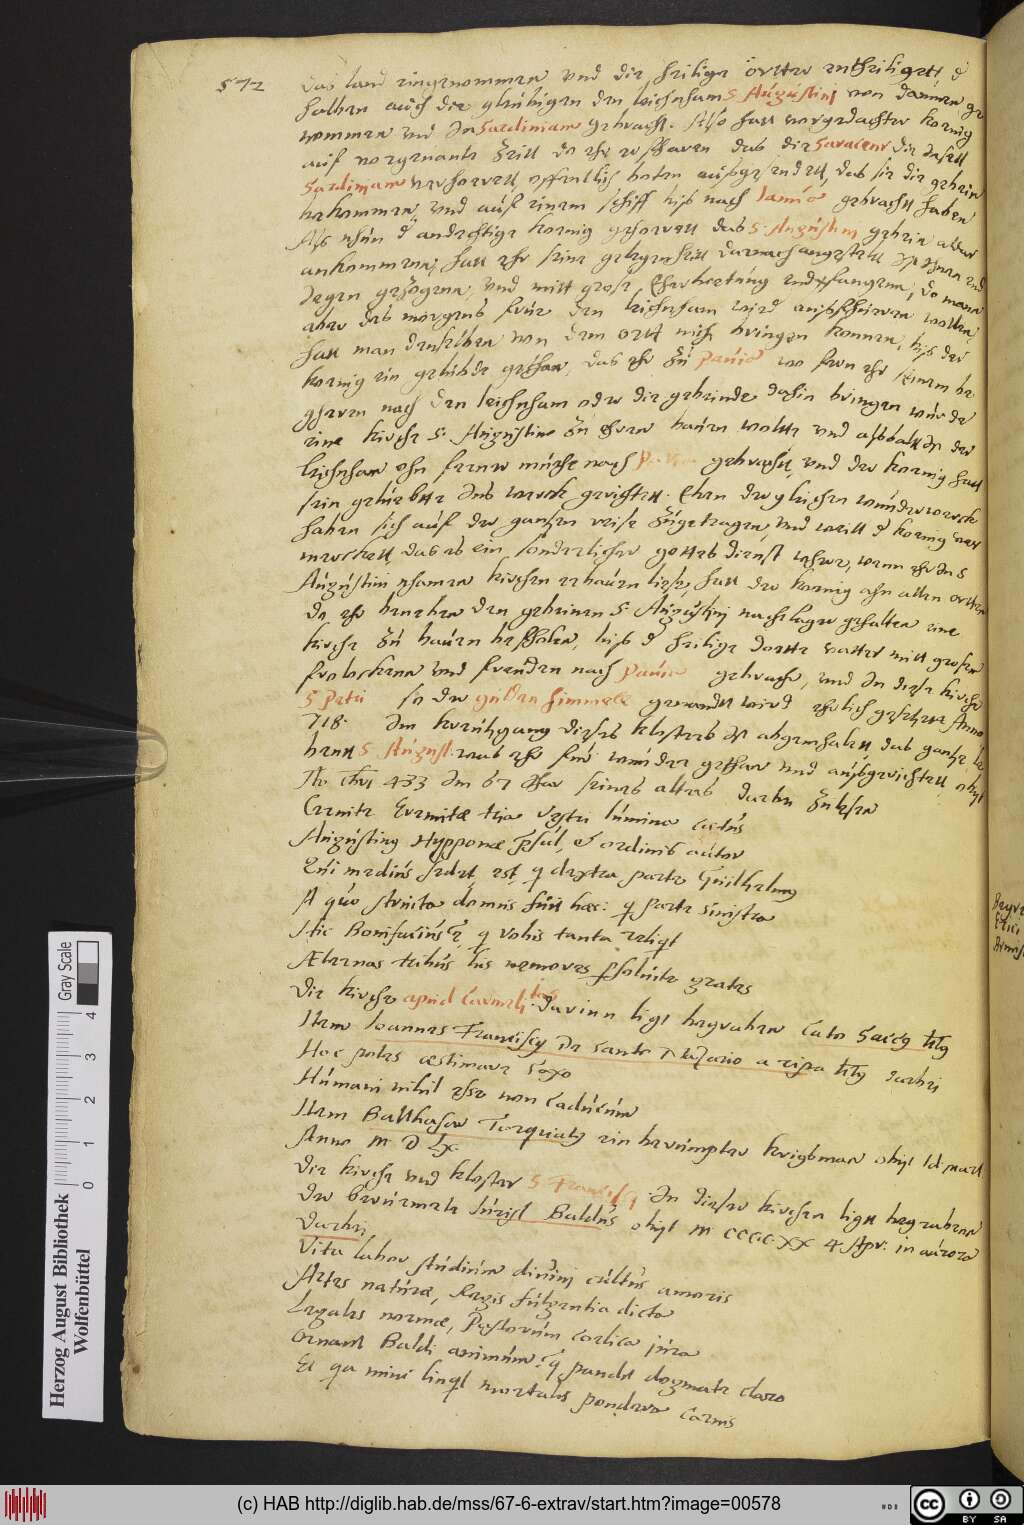 572
das land eingenommen und die heilige örtter entheiliget
haben auch die glaubigen den leichnam S Augustini von dannen ge
nommen und In Sardiniam gebracht. Also hatt vorgedachter koenig
auf vorgenante Zeitt da ehr erfharen das die Saraceni die Insell
Sardiniam verhoerett, offentlich boten aussgesendett, das sie die gebein
bekommen, und auf einem schiff biss nach Ianua gebracht haben
Als nhun d andechtige koenig gehoerett das S. Augustini gebein aldar
ankommen, hatt ehr seine
degen gezogen, und mitt grosser Eherbietung endtfangen, do mann
aber des morgens frue den leichnam wider auffhueren wollen,
hatt man denselben von dem ortt nich bringen konnen, biss der
koenig ein gelubde gethan, das ehr zu Pavia wo fern ehr seinem be
geren nach den leichnam oder die gebeinde dahin bringen wurde
eine kirche S. Augustino zu ehren bauen wolte und alsbaldt ist der
leichnam ohn ferner muehe nach Pavia gebracht, und der koenig hatt
sein geluebtte Ins werck gerichtet. Eben der gleichen wunderwerck
haben sich auf der gantzen reise zugetragen, und weill d koenig ver
merckett, das es ein sonderlicher gottes dienst where, wenn ehr In S
Augustini nhamen kirchen erbauen liesse, hatt der koenig ahn allen orten
da ehr beneben den gebeinen S. Augustini nachtlager gehalten eine
kirche zu bauen befholen, biss d heilige doctte vatter mitt grossen
frolocken und freuden nach Pavia gebracht, und In diese kirche
S Petri so der gulden himmell genandt wird ehrlich gesetzett Anno
718. Im kreutzgang dieses klosters ist abgemhalett, das gantze le
benn S August: was ehr fur wunder gethan und aussgerichtett, obijt
Ao Chri 433 Im 67 Ihar seines alters darbei zu lesen
Cernite Eremitae tria vestri lumina coetus
Augustinus Hipponae Psul, & ordinis autor
Qui medius sedet, est, q dextra parte Guilhelmus
A quo structa domus fuit haec: q parte sinistra
Hic Bonifacius e, q vobis tanta reliqt
Aeternas tribus his nemores psoluite grates
Die kirche apud Carmelitas. Darinn ligt begraben Cato Saccus
Item Ioannes Franciscus De Sancto Nazario a ripa darbei
Hoc potes aestimare Saxo
Humani nihil esse non caducum
Item Balthasar Torquatus ein beruempter krigsman obijt Id Mart
Anno M D LX.
Die kirche und kloster S Francisci In dieser kirchen ligtt begraben
der beruembte Jurist Baldus obijt M CCCC XX 4 Apr: in aurora
darbei
Vita labor studium divini cultus amoris
Artes naturae, Regis fulgentia dicta
Legales normae, Pastorum coelica jura
Ornant Baldi animum: q pandit dogmate claro
Et qa mini linqt mortalis pondera carnis
Gray Scale
0 1 2 3 4
Herzog August Bibliothek
Wolfenbüttel
(c) HAB http://diglib.hab.de/mss/67-6-extrav/start.htm?image=00578
BY SA